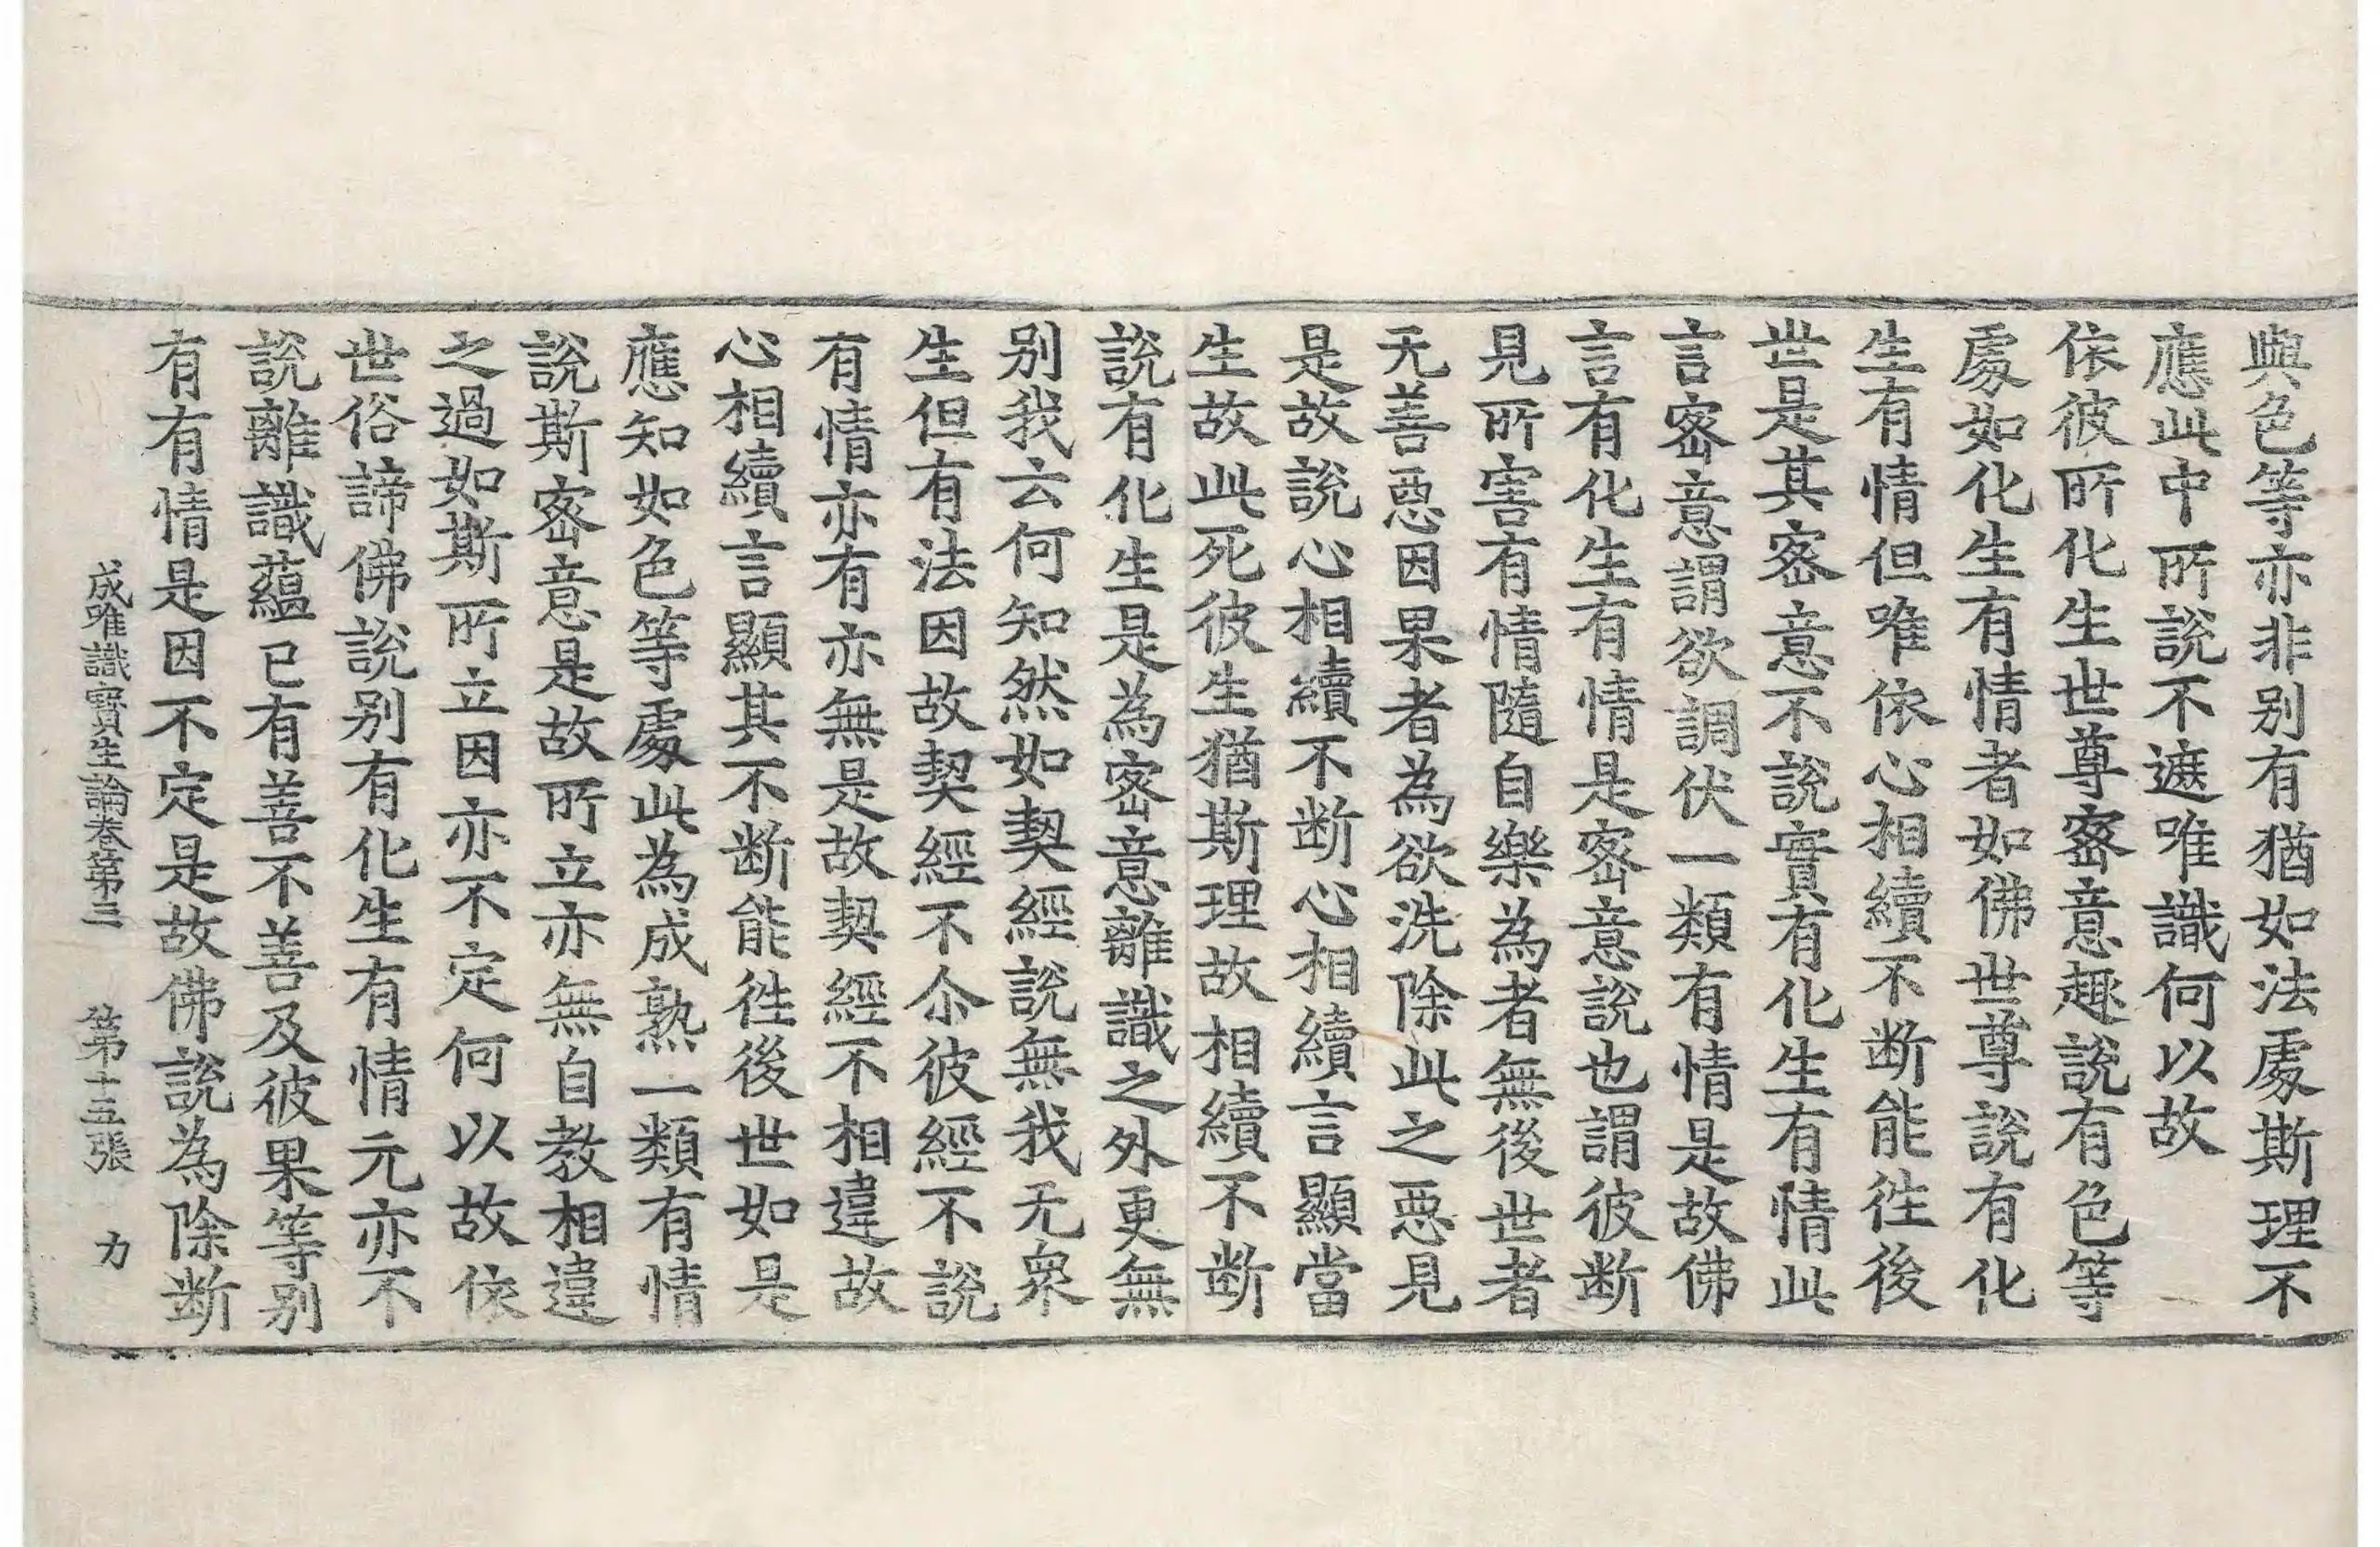 與色等亦非别有猶如法處斯理不
應此中所說不遮唯識何以故
依彼所化生世尊宻意趣說有色等
處如化生有情者如佛世尊說有化
生有情但唯依心相續不断能徃後
世是其宻意不說實有化生有情此
言宻意謂欲調伏一類有情是故佛
言有化生有情是宻意說也謂彼断
見所害有情隨自樂為者無後世者
无善惡因果者為欲洗除此之惡見
是故說心相續不断心相續言顯當
生故此死彼生猶斯理故相續不断
說有化生是為宻意離識之外更無
别我云何知然如契經說無我无衆
生但有法因故契經不尒彼經不說
有情亦有亦無是故契經不相違故
心相續言顯其不断能徃後世如是
應知如色等處此為成熟一類有情
說斯宻意是故所立亦無自教相違
之過如斯所立因亦不定何以故依
世俗諦佛說别有化生有情元亦不
說離識蘊已有善不善及彼果等别
有有情是因不定是故佛說為除断
成唯識寶生論卷第三　第十五張　力